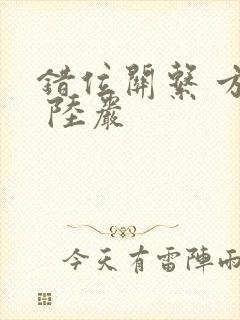 錯位關繫 方
陸嚴
今天有雷陣雨